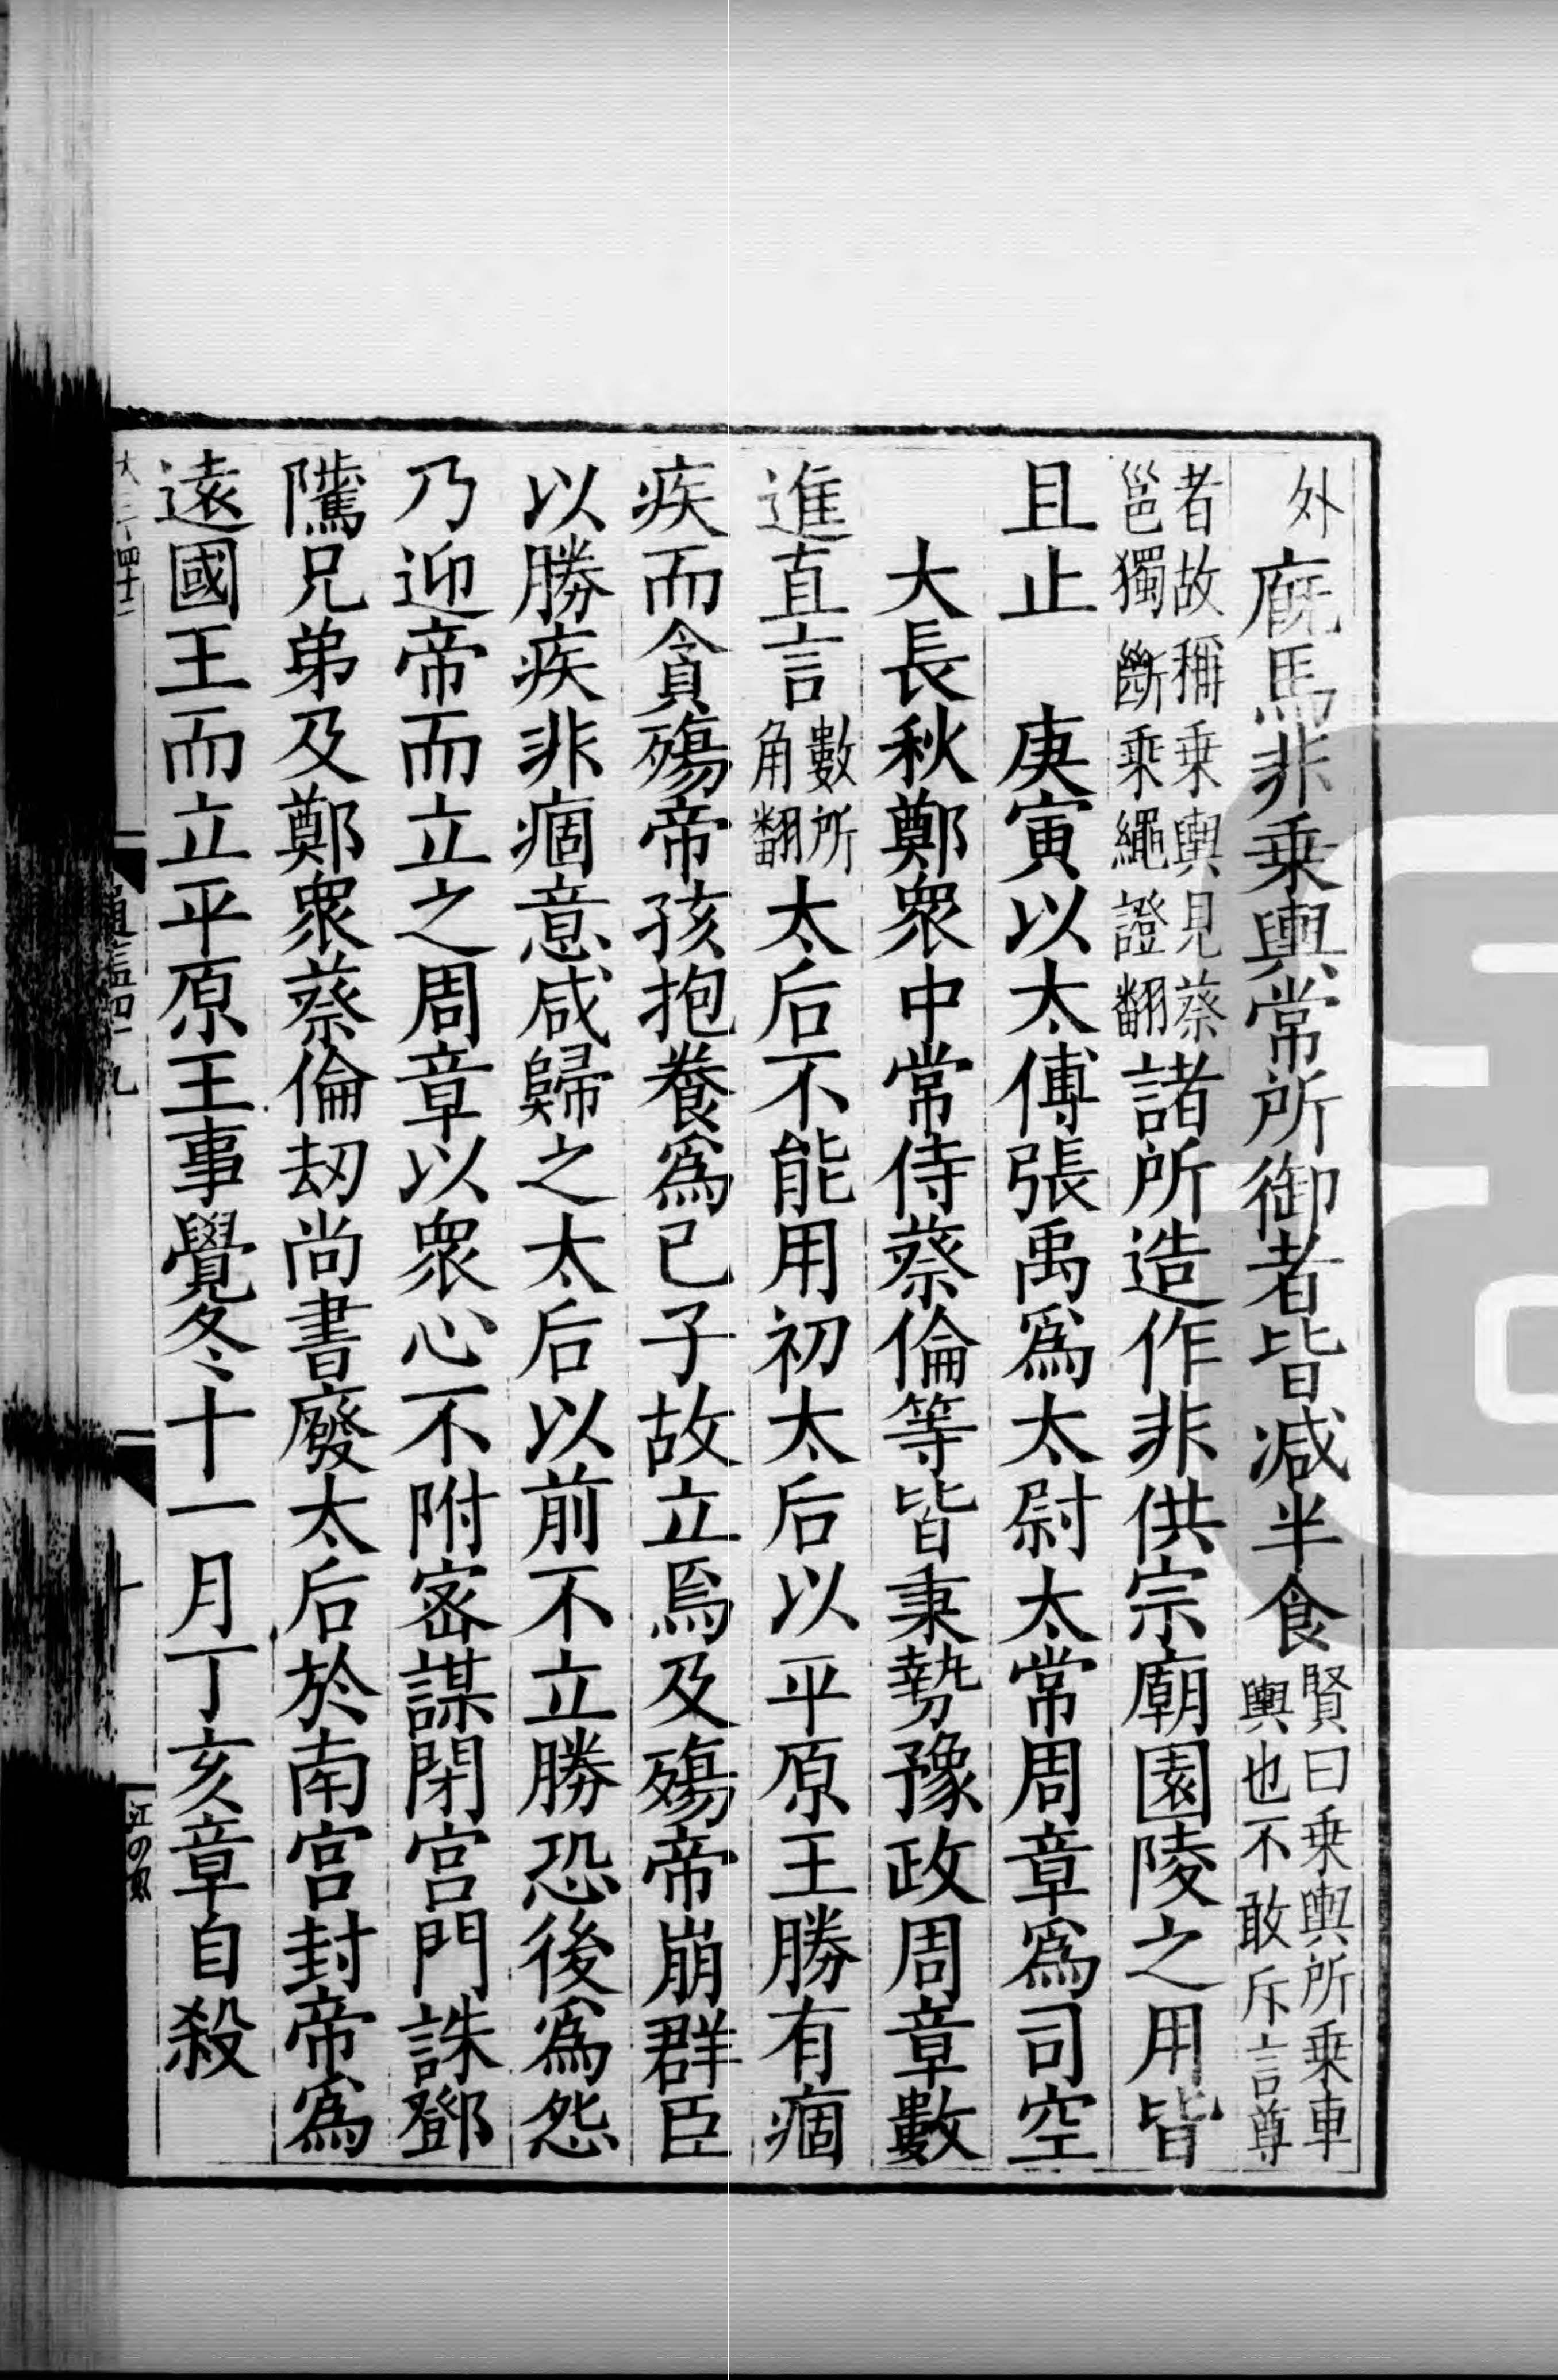 外廐馬非乗輿常所御者皆减半食賢曰乗輿所乗車輿也不敢斥言尊
者故稱乗輿見蔡邕獨斷乘繩證翻諸所造作非供宗廟園陵之用皆
且止　庚寅以太傅張禹爲太尉太常周章爲司空
大長秋鄭衆中常侍蔡倫等皆秉勢豫政周章數
進直言數所角翻太后不能用初太后以平原王勝有痼
疾而貪殤帝孩抱養爲己子故立焉及殤帝崩群臣
以勝疾非痼意咸歸之太后以前不立勝恐後爲怨
乃迎帝而立之周章以衆心不附密謀閉宫門誅鄧
隲兄弟及鄭衆蔡倫刧尚書廢太后於南宫封帝爲
遠國王而立平原王事覺冬十一月丁亥章自殺